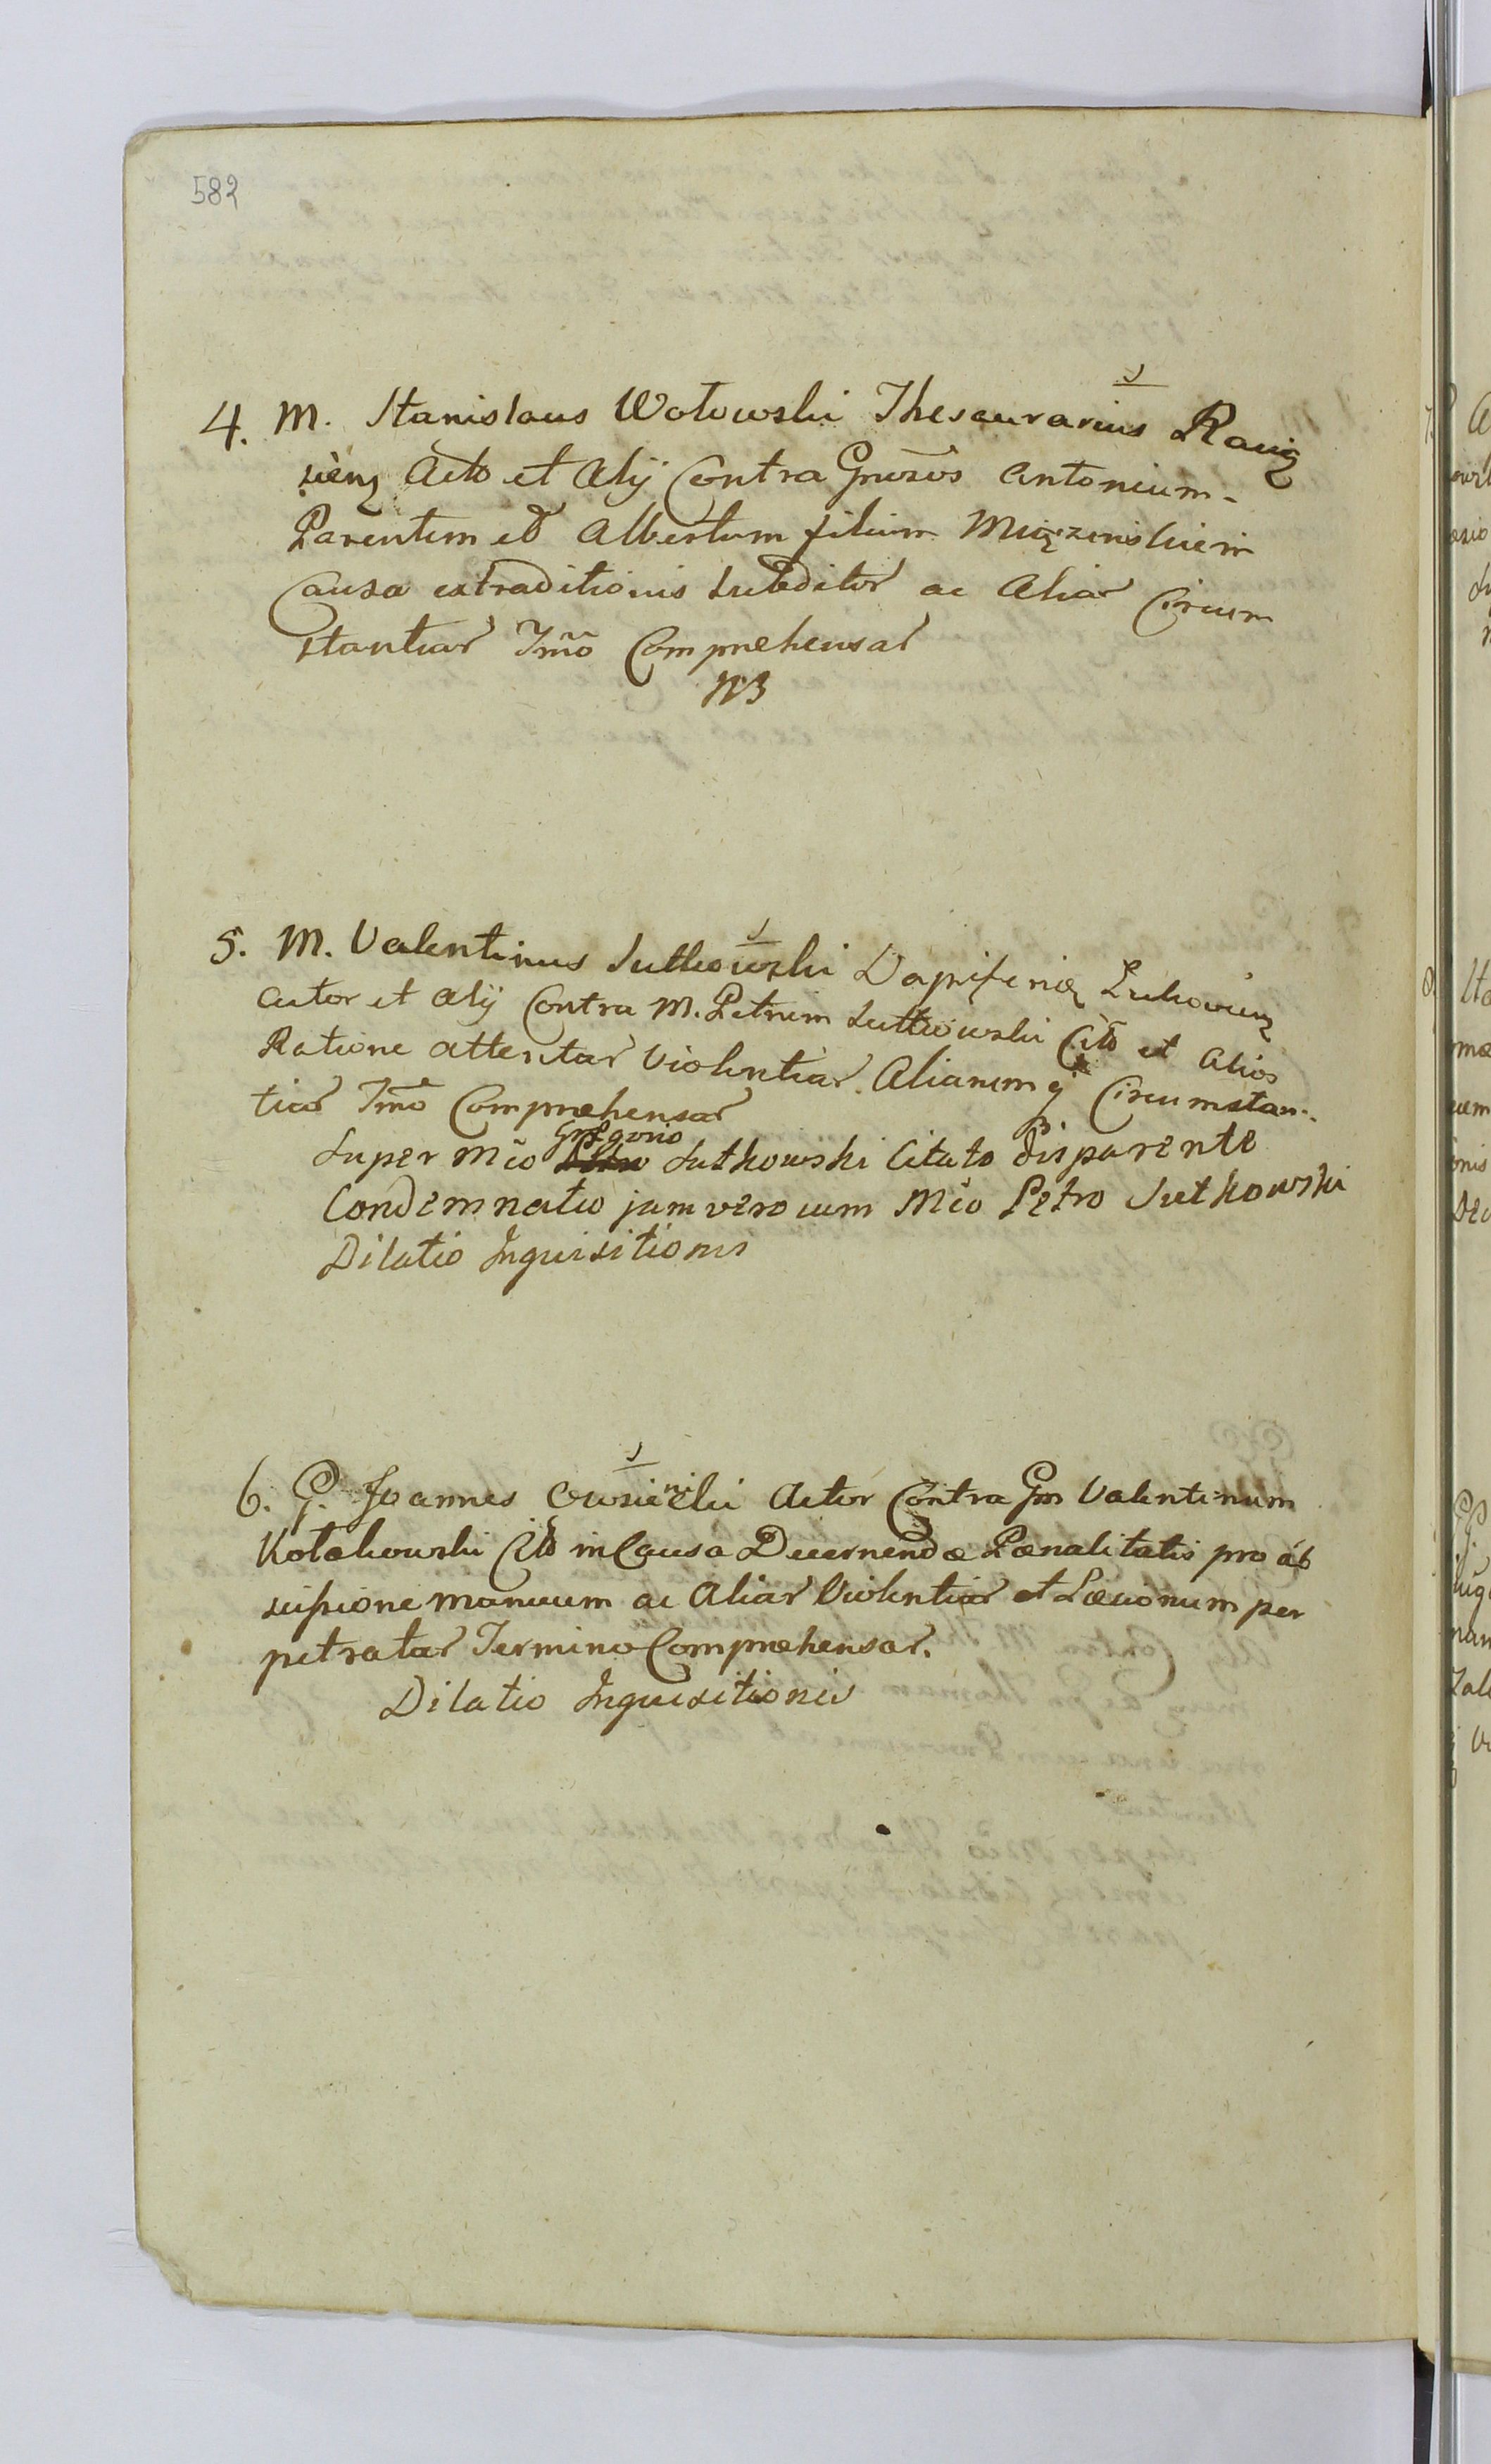 582
4. M. Stanislaus Wołowski Thesaurarius Rawę
Actó et Alÿ Contra Gnosos Antonium-
Parentem et Albertum filium
Causa extraditionis Subditor ac Aliar Circum
stantiar Tmõ Comprehensar
5. M. Valentinus Sutkowski Dapiferię Lukoviens
Actor et Alÿ Contra M. Petrum Sutkowski Cito et Alios
Ratione attentar Violentiar Aliarumq Circumstan-
tiar Tmõ Comprehensar
Gregorio
Super Mčo Petro Sutkowski Citato disparente
Condemnatio jam vero cum Mčo Petro Sutkowski
Dilatio Inquisitionis
6. G. Joannes Actor Contra Gm Valentinum
Kołakowski Citõ in Causa Decernendæ Pænalitatis pro ab
scissione manuum ac Aliar Violentiar et Læsionum per
petratar Termino Comprehensar.
Dilatio Inquisitionis